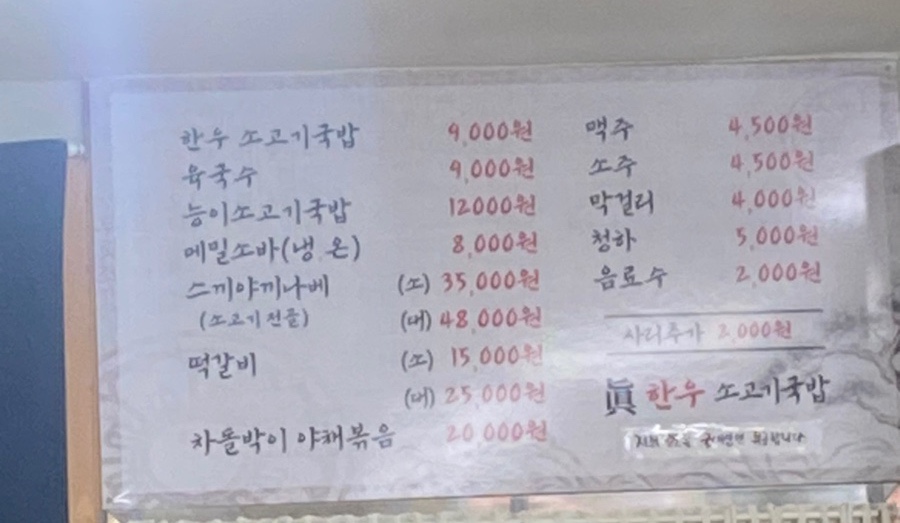 한우 소고기국밥 9,000원
육국수 9,000원
능이소고기국밥 12000원
메밀소바(냉 온) 8,000원
스끼야끼나베 (소) 35,000원
(소고기전골) (대) 48,000원
떡갈비 (소) 15,000원
(대) 25,000원
차돌박이 야채볶음 20 000원
맥주 4,500원
소주 4,500원
막걸리 4,000원
청하 5,000원
음료수 2,000원
사리추가 2,000원
眞 한우 소고기국밥